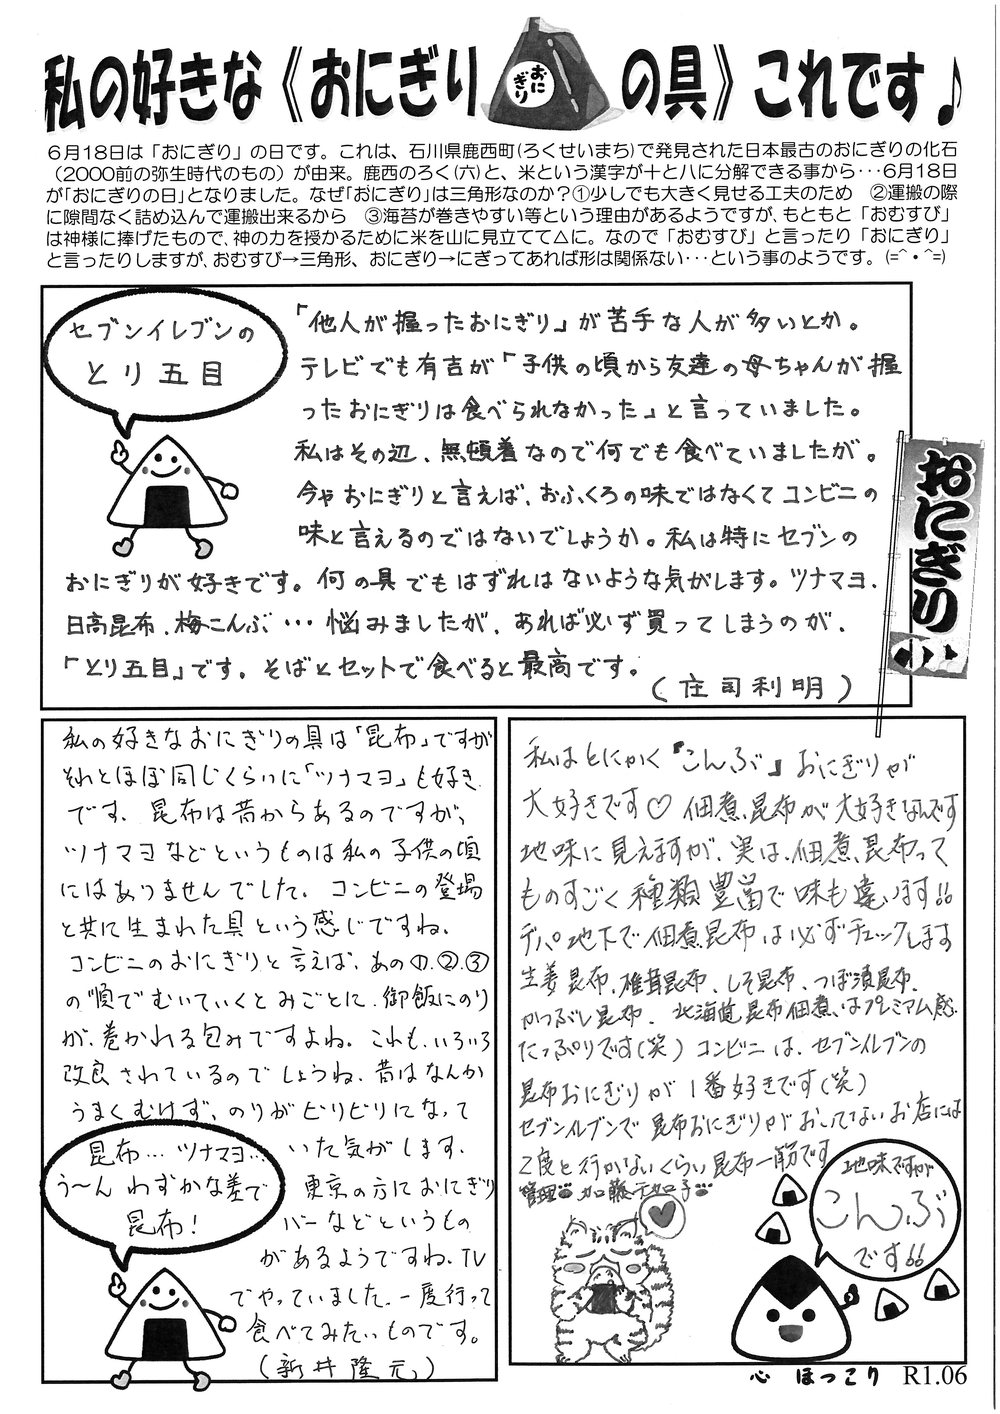 私の好きな《おにぎり
おに
ぎり
の具》これです♪
6月18日は「おにぎり」の日です。これは、石川県鹿西町(ろくせいまち)で発見された日本最古のおにぎりの化石
(2000前の弥生時代のもの)が由来。鹿西のろく(六)と、米という漢字が十と八に分解できる事から･･･6月18日
が「おにぎりの日」となりました。なぜ「おにぎり」は三角形なのか？①少しでも大きく見せる工夫のため　②運搬の際
に隙間なく詰め込んで運搬出来るから　③海苔が巻きやすい等という理由があるようですが、もともと「おむすび」
は神様に捧げたもので、神の力を授かるために米を山に見立てて△に。なので「おむすび」と言ったり「おにぎり」
と言ったりしますが、おむすび→三角形、おにぎり→にぎってあれば形は関係ない･･･という事のようです。(=^・^=)
セブンイレブンの
とり五目
「他人が握ったおにぎり」が苦手な人が多いとか。
テレビでも有吉が「子供の頃から友達の母ちゃんが握
ったおにぎりは食べられなかった」と言っていました。
私はその辺、無頓着なので何でも食べていましたが。
今やおにぎりと言えば、おふくろの味ではなくてコンビニの
味と言えるのではないでしょうか。私は特にセブンの
おにぎりが好きです。何の具でもはずれはないような気がします。ツナマヨ、
日高昆布、梅こんぶ…悩みましたが、あれば必ず買ってしまうのが、
「とり五目」です。そばとセットで食べると最高です。
(庄司利明)
おにぎり
私の好きなおにぎりの具は「昆布」ですが
それとほぼ同じくらいに「ツナマヨ」も好き
です。昆布は昔からあるのですが、
ツナマヨなどというものは私の子供の頃
にはありませんでした。コンビニの登場
と共に生まれた具という感じですね。
コンビニのおにぎりと言えば、あの①.②.③
の順でむいていくとみごとに、御飯にのり
が、巻かれる包みですよね。これも、いろいろ
改良されているのでしょうね。昔はなんか
うまくむけず、のりがビリビリになって
いた気がします。
東京の方におにぎり
バーなどというもの
があるようですね。TV
でやっていました。一度行って
食べてみたいものです。
(新井隆元)
昆布…ツナマヨ…
う〜んわずかな差で
昆布！
私はとにかく『こんぶ』おにぎりが
大好きです♡ 佃煮、昆布が大好きなんです
地味に見えますが、実は、佃煮、昆布って
ものすごく種類豊富で味も違います!!
デパ地下で佃煮昆布は必ずチェックします
生姜昆布、椎茸昆布、しそ昆布、つぼ漬昆布、
かつぶし昆布、北海道昆布佃煮、はプレミアム感
たっぷりです(笑) コンビニは、セブンイレブンの
昆布おにぎりが1番好きです(笑)
セブンイレブンで昆布おにぎりがおいてないお店には
2度と行かないくらい昆布一筋です
管理 加藤
地味ですが
こんぶ
です!!
心 ほっこり R1.06